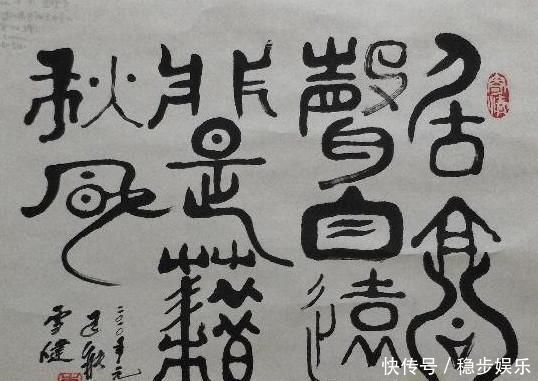 居高
聲自遠
非是藉
秋風
二〇〇五年元
雪健
快传号／稳步娱乐